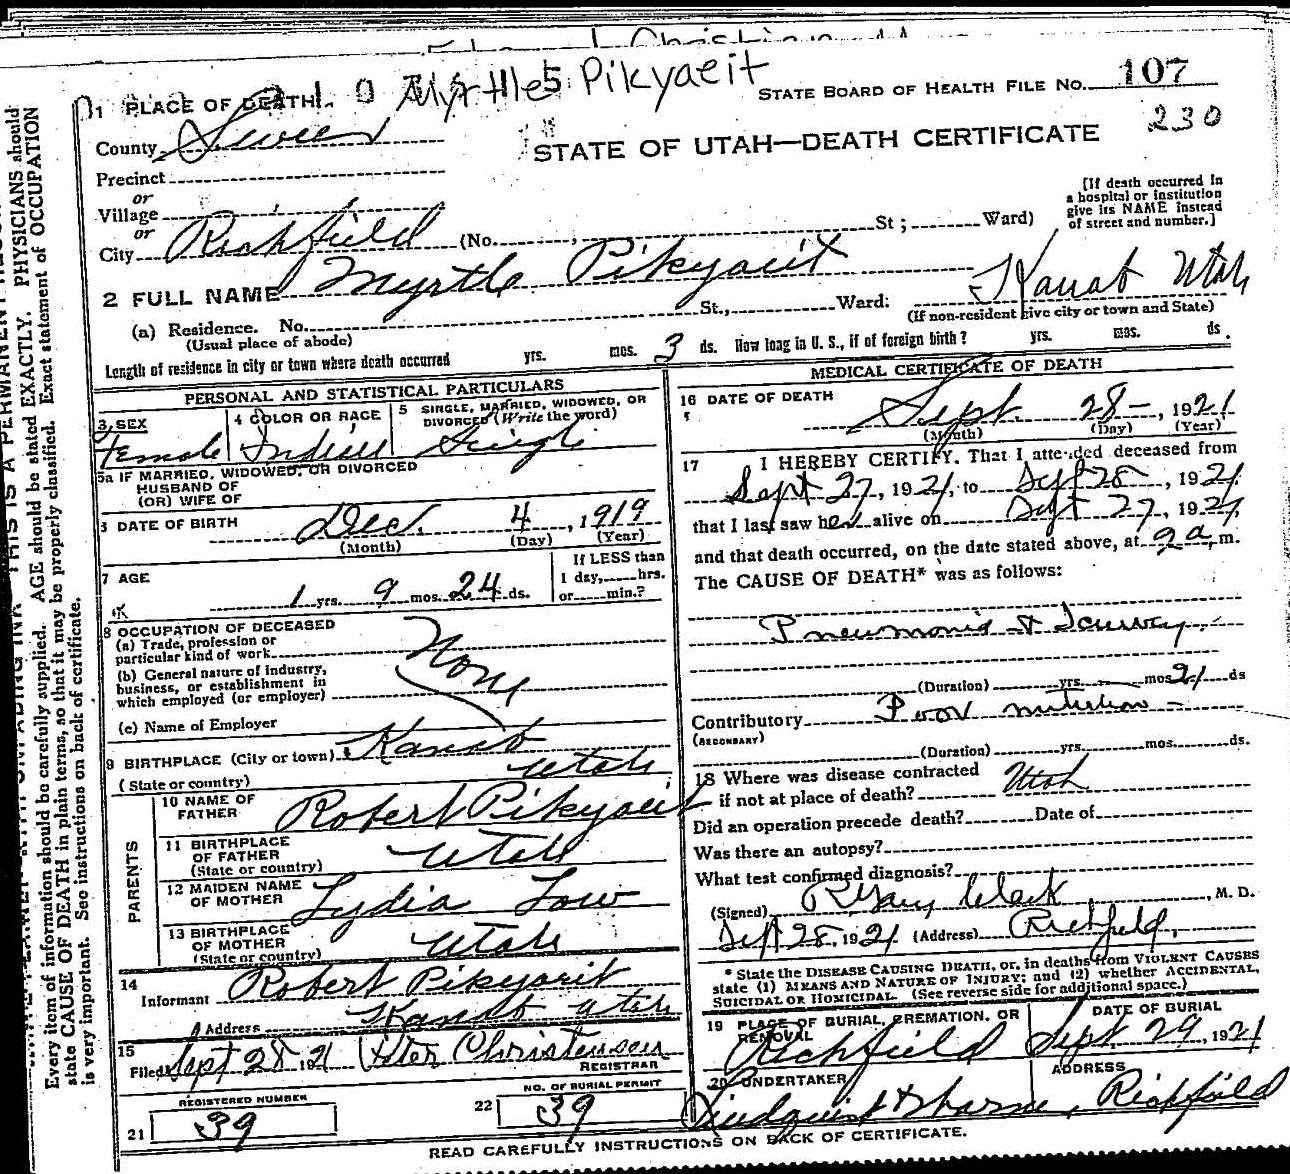 Myrtle Pikyaeit
1 PLACE OF DEATH
STATE BOARD OF HEALTH FILE No. 107
230
County Sevier
STATE OF UTAH—DEATH CERTIFICATE
Precinct
or
Village
or
City Richfield (No. St; Ward)
[If death occurred in a hospital or institution give its NAME instead of street and number.]
2 FULL NAME Myrtle Pikyavit
(a) Residence. No. St., Ward. Kanab Utah
(Usual place of abode) (If non-resident give city or town and State)
Length of residence in city or town where death occurred yrs. mos. 3 ds. How long in U. S., if of foreign birth? yrs. mos. ds.
PERSONAL AND STATISTICAL PARTICULARS
3 SEX Female
4 COLOR OR RACE Indian
5 SINGLE, MARRIED, WIDOWED, OR DIVORCED (Write the word) Single
5a IF MARRIED, WIDOWED, OR DIVORCED
HUSBAND OF
(OR) WIFE OF
6 DATE OF BIRTH Dec. 4, 1919
(Month) (Day) (Year)
7 AGE 1 yrs. 9 mos. 24 ds.
If LESS than 1 day, hrs. or min.?
8 OCCUPATION OF DECEASED
(a) Trade, profession or particular kind of work
(b) General nature of industry, business, or establishment in which employed (or employer)
None
(c) Name of Employer
9 BIRTHPLACE (City or town) Kanab
(State or country) Utah
PARENTS
10 NAME OF FATHER Robert Pikyavit
11 BIRTHPLACE OF FATHER (State or country) Utah
12 MAIDEN NAME OF MOTHER Lydia Tow
13 BIRTHPLACE OF MOTHER (State or country) Utah
14 Informant Robert Pikyavit
Address Kanab Utah
15 Filed Sept 28 1921 Peter Christensen
REGISTRAR
REGISTERED NUMBER
21 39
NO. OF BURIAL PERMIT
22 39
MEDICAL CERTIFICATE OF DEATH
16 DATE OF DEATH Sept. 28-, 1921
(Month) (Day) (Year)
17 I HEREBY CERTIFY, That I attended deceased from
Sept 27, 1921, to Sept 28, 1921,
that I last saw her alive on Sept 27, 1921,
and that death occurred, on the date stated above, at 9 a, m.
The CAUSE OF DEATH* was as follows:
Pneumonia & Scurvy.
(Duration) yrs. mos. 21 ds
Contributory Poor nutrition
(SECONDARY)
(Duration) yrs. mos. ds.
18 Where was disease contracted
if not at place of death? Utah
Did an operation precede death? Date of
Was there an autopsy?
What test confirmed diagnosis?
(Signed) Clark, M. D.
Sept 28, 1921 (Address) Richfield,
* State the DISEASE CAUSING DEATH, or, in deaths from VIOLENT CAUSES
state (1) MEANS AND NATURE OF INJURY; and (2) whether ACCIDENTAL,
SUICIDAL OR HOMICIDAL. (See reverse side for additional space.)
19 PLACE OF BURIAL, CREMATION, OR REMOVAL Richfield
DATE OF BURIAL Sept. 29, 1921
20 UNDERTAKER Lindquist &
ADDRESS Richfield
READ CAREFULLY INSTRUCTIONS ON BACK OF CERTIFICATE.
Every item of information should be carefully supplied. AGE should be stated EXACTLY. PHYSICIANS should
state CAUSE OF DEATH in plain terms, so that it may be properly classified. Exact statement of OCCUPATION
is very important. See instructions on back of certificate.